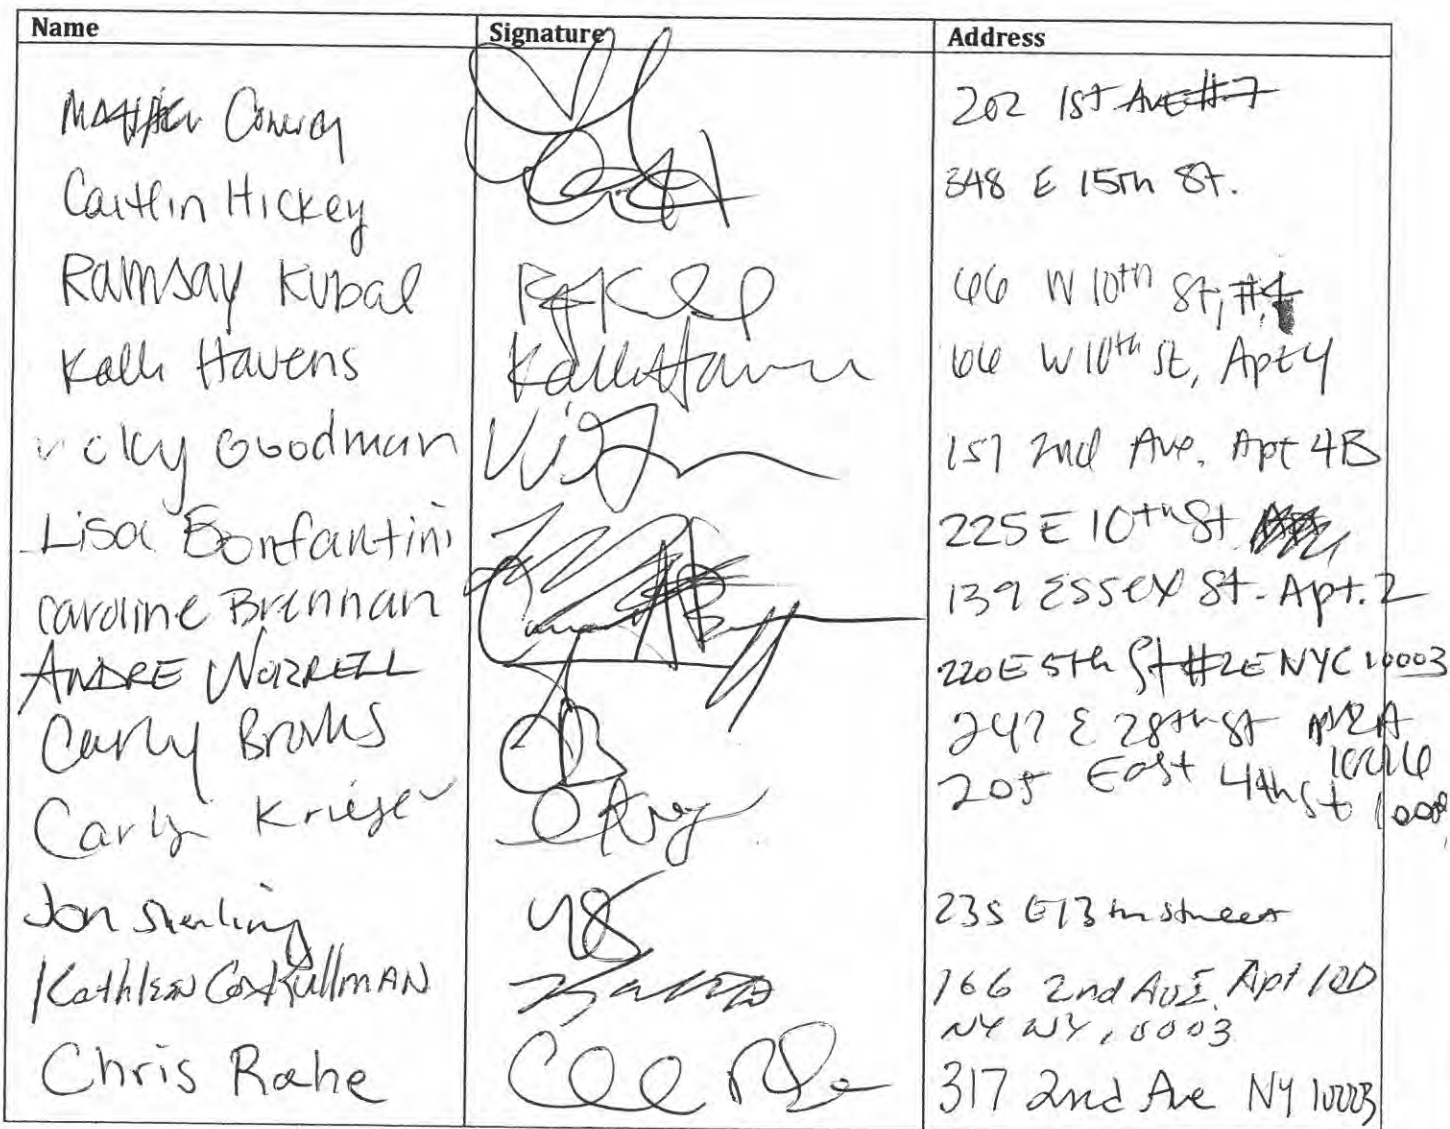 Name Signature Address
Matthew Conway 202 1st Ave #7
Caitlin Hickey 348 E 15th St.
Ramsay Kubal 66 W 10th St, #4
Kalli Havens Kalli Haven 66 W 10th St, Apt 4
Vicky Goodman 157 2nd Ave. Apt 4B
Lisa Bonfantini 225 E 10th St
Caroline Brennan 139 Essex St. Apt. 2
ANDRE WORRELL 220 E 5th St #2E NYC 10003
Carly Brooks 247 E 28th St Apt 2A
10016
Carly Krieger 205 East 4th St
Jon Sterling 235 E 13th Street
Kathleen Cox Kullman 166 2nd AVE. Apt 10D
NY NY, 10003
Chris Rahe 317 2nd Ave NY 10003